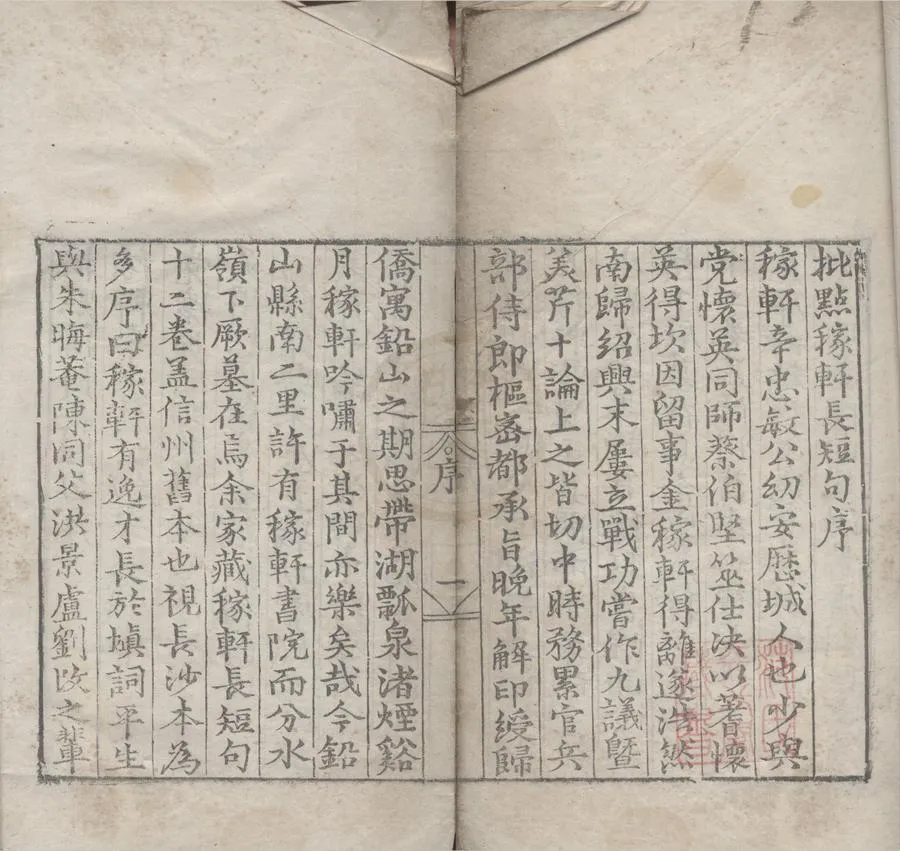 批點稼軒長短句序
稼軒辛忠敏公幼安歷城人也少與
党懷英同師蔡伯堅筮仕決以蓍懷
英得坎因留事金稼軒得離遂浩然
南歸紹興末屢立戰功嘗作九議暨
美芹十論上之皆切中時務累官兵
部侍郎樞密都承旨晚年解印綬歸
序
一
僑寓鉛山之期思帶湖瓢泉渚煙谿
月稼軒吟嘯于其間亦樂矣哉今鉛
山縣南二里許有稼軒書院而分水
嶺下厥墓在焉余家藏稼軒長短句
十二卷盖信州舊本也視長沙本為
多序曰稼軒有逸才長於塡詞平生
與朱晦菴陳同父洪景盧劉改之輩